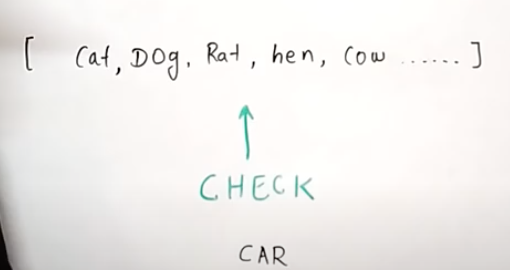 [ Cat, DOg, Rat, hen, Cow ...... ]
CHECK
CAR